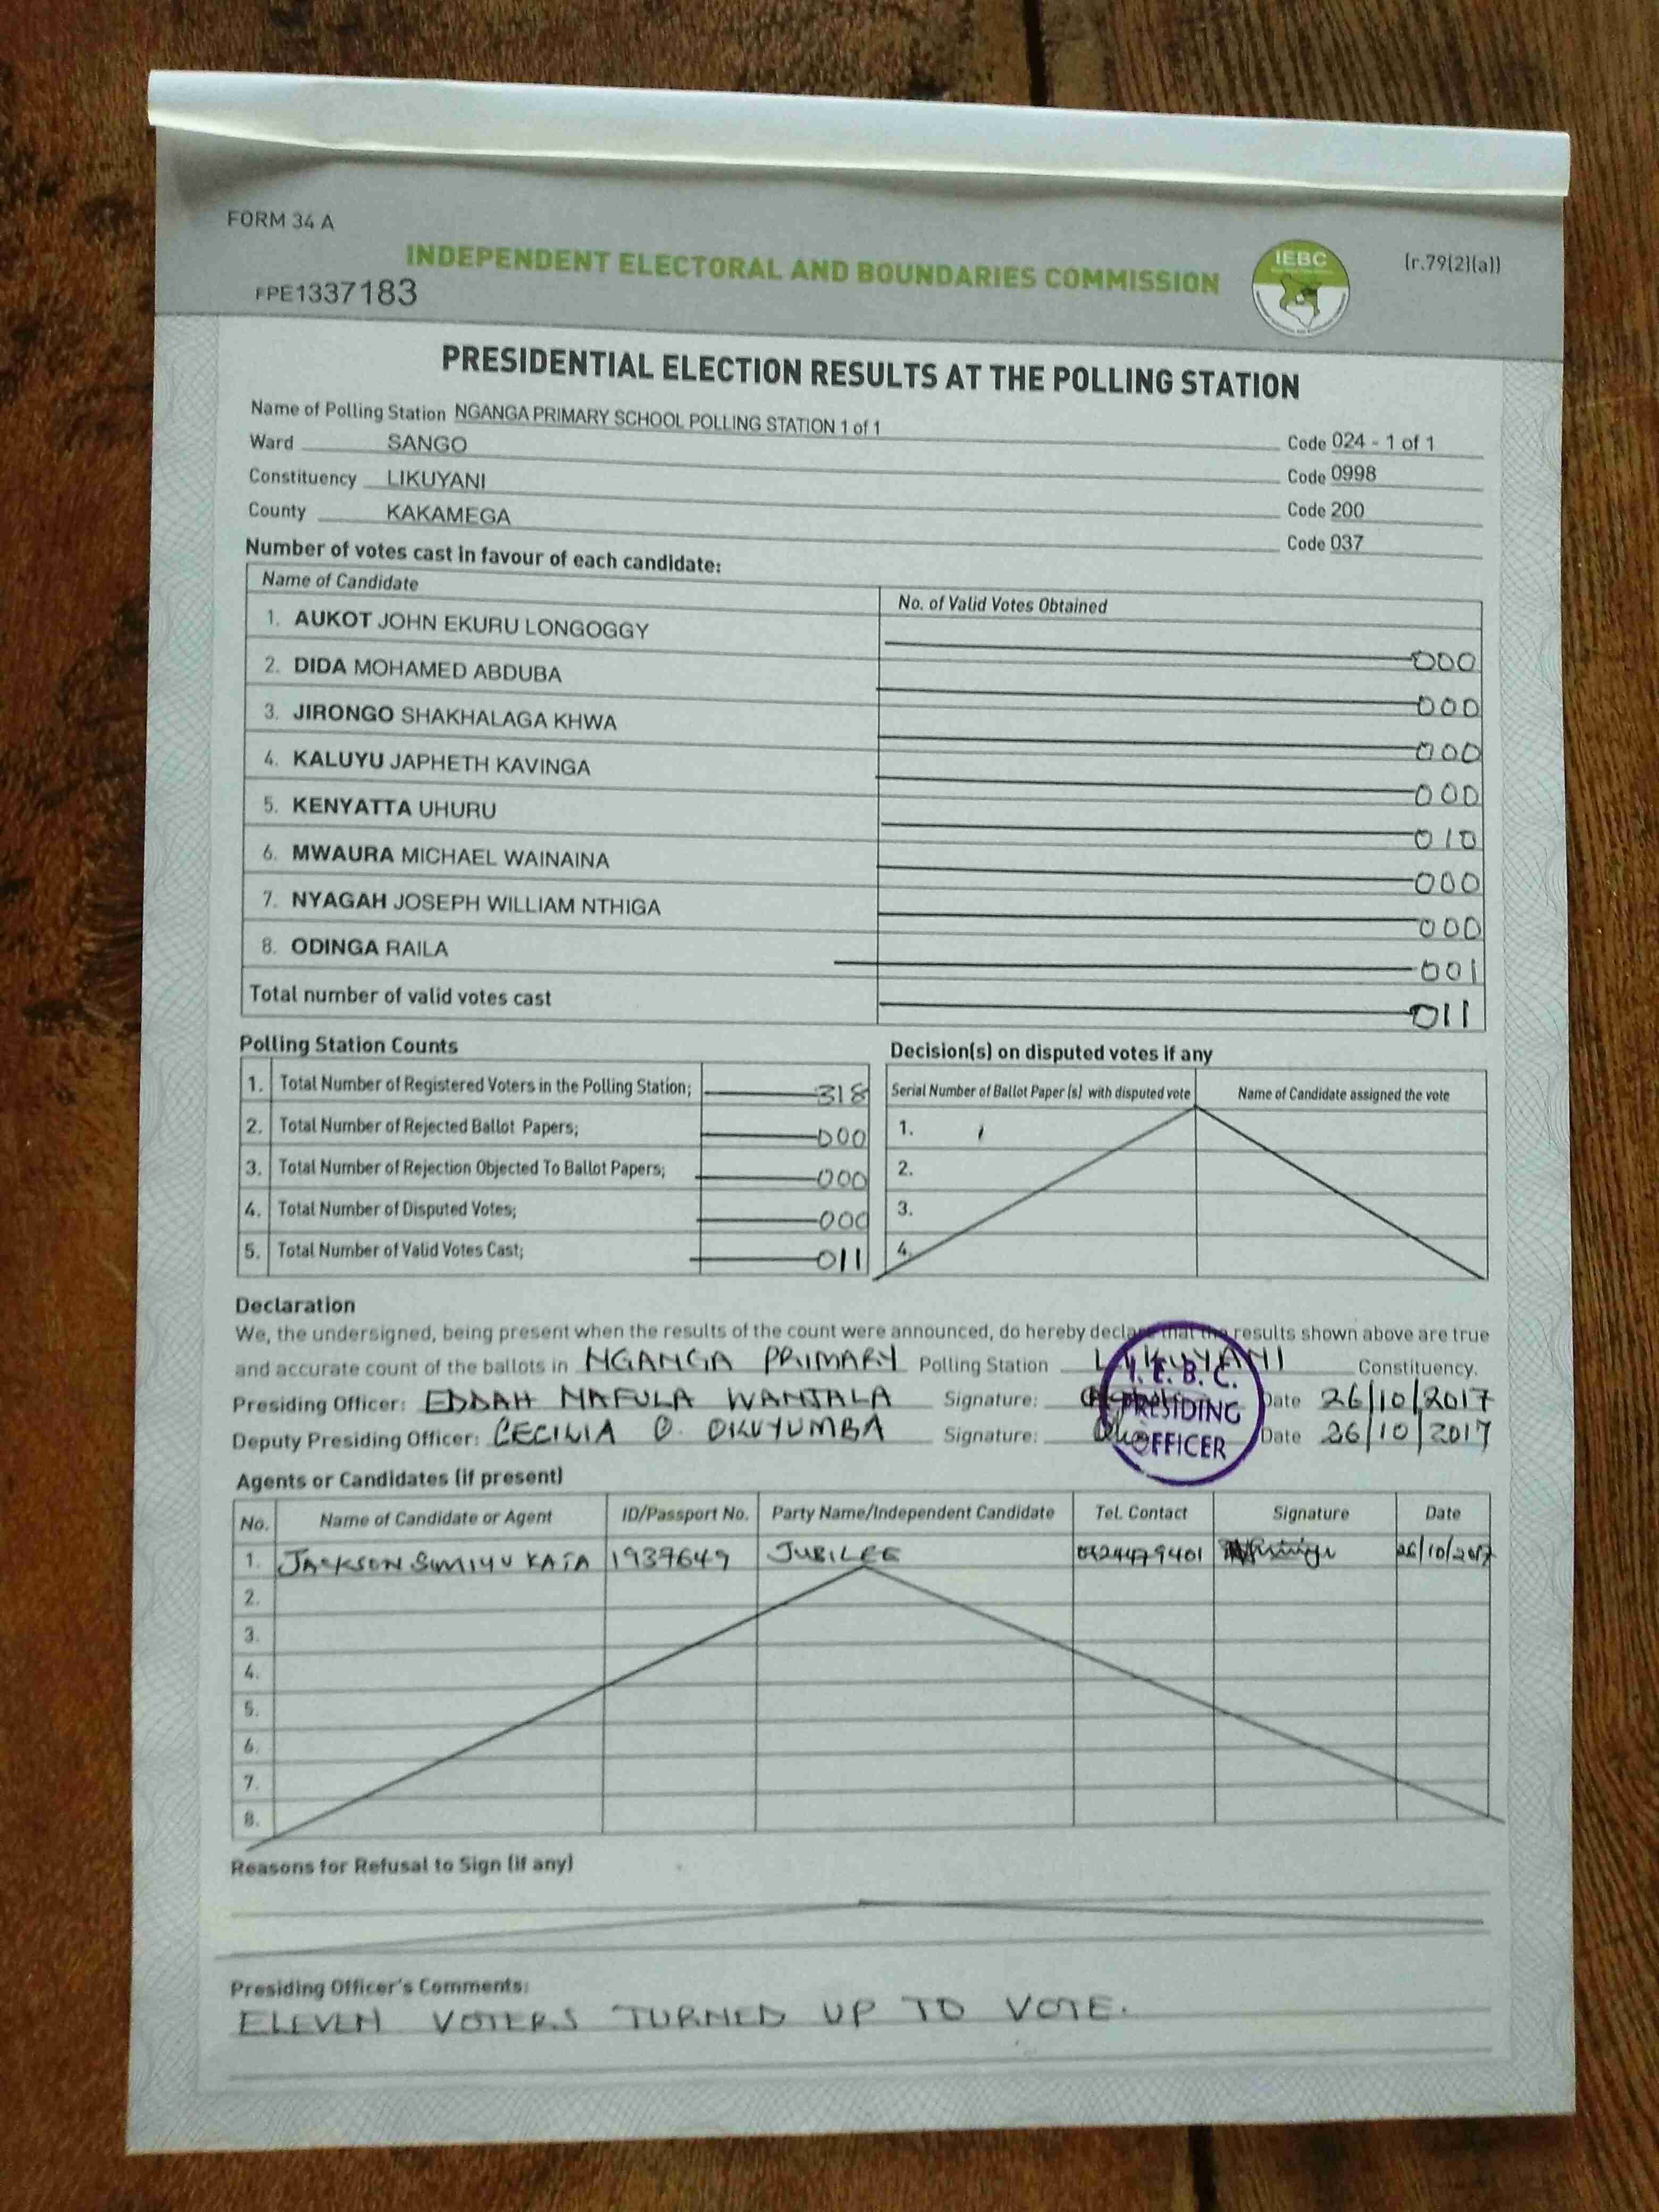 FORM 34 A
INDEPENDENT ELECTORAL AND BOUNDARIES COMMISSION
IEBC
(r.79(2)(a))
FPE1337183
PRESIDENTIAL ELECTION RESULTS AT THE POLLING STATION
Name of Polling Station NGANGA PRIMARY SCHOOL POLLING STATION 1 of 1 Code 024 - 1 of 1
Ward SANGO Code 0998
Constituency LIKUYANI Code 200
County KAKAMEGA Code 037
Number of votes cast in favour of each candidate:
Name of Candidate No. of Valid Votes Obtained
1. AUKOT JOHN EKURU LONGOGGY 000
2. DIDA MOHAMED ABDUBA 000
3. JIRONGO SHAKHALAGA KHWA 000
4. KALUYU JAPHETH KAVINGA 000
5. KENYATTA UHURU 010
6. MWAURA MICHAEL WAINAINA 000
7. NYAGAH JOSEPH WILLIAM NTHIGA 000
8. ODINGA RAILA 001
Total number of valid votes cast 011
Polling Station Counts
1. Total Number of Registered Voters in the Polling Station; 318
2. Total Number of Rejected Ballot Papers; 000
3. Total Number of Rejection Objected To Ballot Papers; 000
4. Total Number of Disputed Votes; 000
5. Total Number of Valid Votes Cast; 011
Decision(s) on disputed votes if any
Serial Number of Ballot Paper (s) with disputed vote Name of Candidate assigned the vote
1.
2.
3.
4.
Declaration
We, the undersigned, being present when the results of the count were announced, do hereby declare that the results shown above are true
and accurate count of the ballots in NGANGA PRIMARY Polling Station LIKUYANI Constituency.
Presiding Officer: EDDAH NAFULA WANJALA Signature: Date 26/10/2017
Deputy Presiding Officer: CECILIA O. OKUYUMBA Signature: Date 26/10/2017
I.E.B.C.
PRESIDING
OFFICER
Agents or Candidates (if present)
No. Name of Candidate or Agent ID/Passport No. Party Name/Independent Candidate Tel. Contact Signature Date
1. JACKSON SIMIYU 1937649 JUBILEE 26/10/2017
2.
3.
4.
5.
6.
7.
8.
Reasons for Refusal to Sign (if any)
Presiding Officer's Comments:
ELEVEN VOTERS TURNED UP TO VOTE.